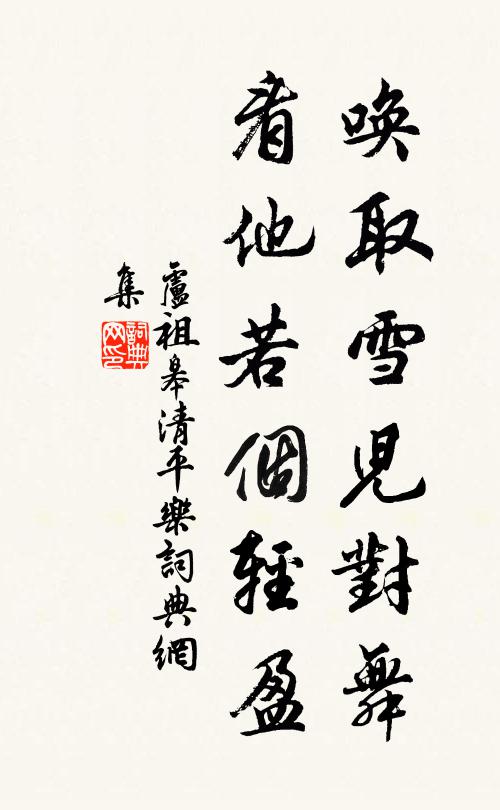 喚取雪児對舞
看他若個輕盈
盧祖皋清平樂詞典網
集
詞典网印